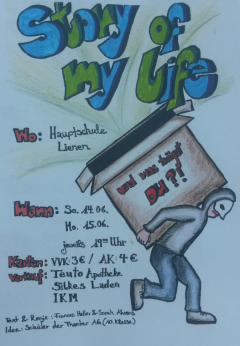 Story of
my life
Wo: Hauptschule
Lienen
und was trägst
DU?!
Wann: So. 14.06.
Mo. 15.06.
jeweils 19⁰⁰ Uhr
Karten-
verkauf:
VVK: 3€ / AK: 4€
Teuto Apotheke
Silkes Laden
IKM
Text & Regie: Hannes Heller & Sarah
Idee: Schüler der Theater AG (10. Klasse)